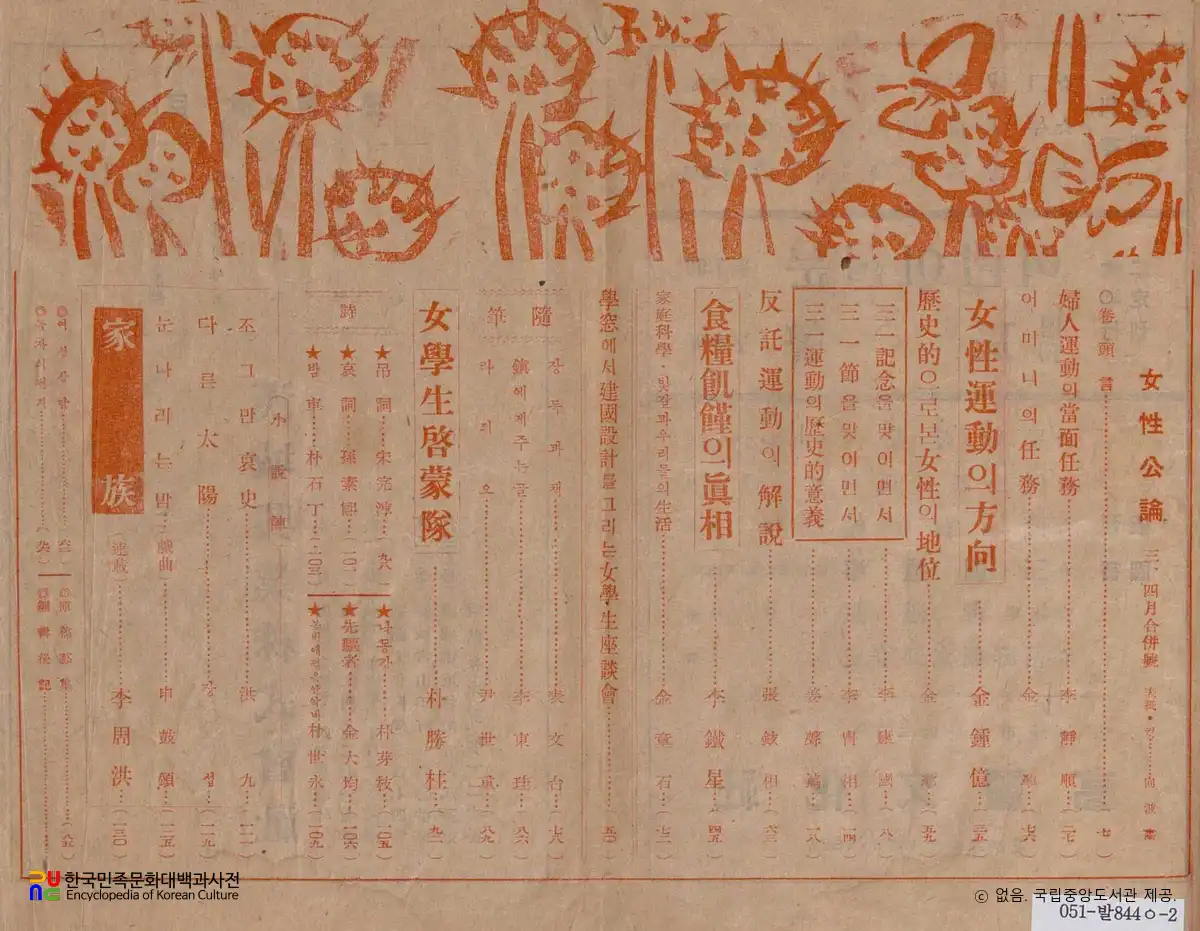 女性公論 三、四月合併號
○卷頭言 七
婦人運動의當面任務 李靜順
어머니의任務 金
女性運動의方向 金鍾億
歷史的으로본女性의地位 金
三一記念을맞이면서 李康國 八
三一節을맞이면서 李胄相 一四
三一運動의歷史的意義 一八
反託運動의解說 張鉉相
食糧飢饉의眞相 李鐵星 四五
家庭科學・빛갈과우리들의生活 金章石
學窓에서建國設計를그리는女學生座談會 五〇
隨筆
文台
鎭에게주는글 李東珪 八六
尹世重 八九
女學生啓蒙隊 朴勝柱 九一
詩
★吊詞 宋完淳 九八
★哀詞 孫素熙
★밤車 朴石丁
★나동가 朴芽枝 一〇五
★先驅者 金大均 一〇六
朴世永 一〇九
小說陣
조그만哀史 洪九
다른太陽 강형
눈나리는밤 戲曲 申鼓頌
家族 (連載) 李周洪 (一三〇)
◎여성사랑
◎原稿募集
◎編輯後記
한국민족문화대백과사전
Encyclopedia of Korean Culture
ⓒ 없음. 국립중앙도서관 제공.
051-발844ㅇ-2